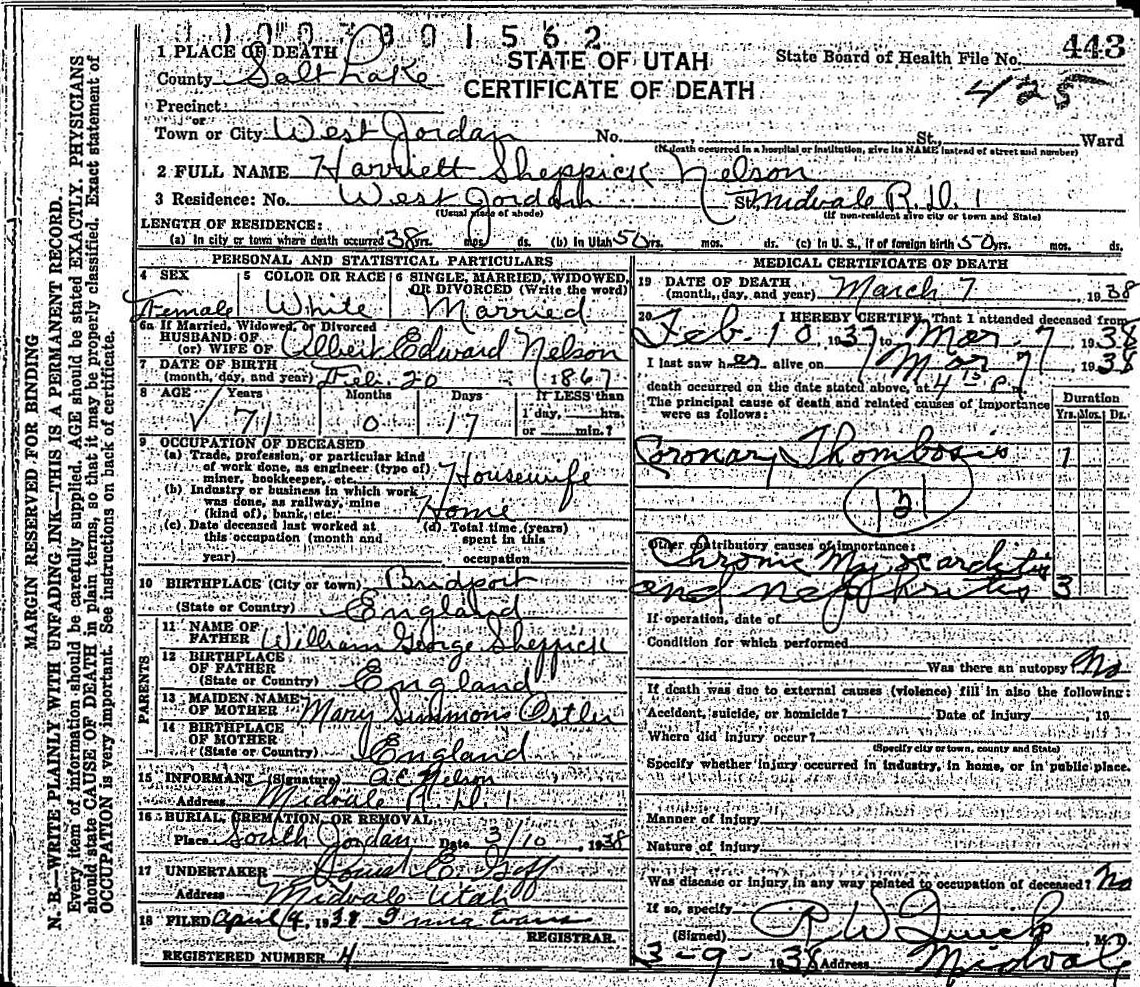 1100301562
1 PLACE OF DEATH
County Salt Lake
STATE OF UTAH
CERTIFICATE OF DEATH
State Board of Health File No. 443
425
Precinct
or
Town or City West Jordan No. St. Ward
(If death occurred in a hospital or institution, give its NAME instead of street and number)
2 FULL NAME Harriett Sheppick Nelson
3 Residence: No. West Jordan St. Midvale R. D. 1
(Usual place of abode) (If non-resident give city or town and State)
LENGTH OF RESIDENCE:
(a) In city or town where death occurred 38 yrs. mos. ds. (b) In Utah 50 yrs. mos. ds. (c) In U. S., if of foreign birth 50 yrs. mos. ds.
PERSONAL AND STATISTICAL PARTICULARS
4 SEX 5 COLOR OR RACE 6 SINGLE, MARRIED, WIDOWED,
OR DIVORCED (Write the word)
Female White Married
6a If Married, Widowed, or Divorced
HUSBAND OF
(or) WIFE OF Albert Edward Nelson
7 DATE OF BIRTH
(month, day, and year) Feb. 20 1867
8 AGE Years Months Days If LESS than
1 day, hrs.
or min.?
71 0 17
9 OCCUPATION OF DECEASED
(a) Trade, profession, or particular kind
of work done, as engineer (type of)
miner, bookkeeper, etc. Housewife
(b) Industry or business in which work
was done, as railway, mine
(kind of), bank, etc. Home
(c) Date deceased last worked at (d) Total time (years)
this occupation (month and spent in this
year) occupation
10 BIRTHPLACE (City or town) Bridport
(State or Country) England
PARENTS
11 NAME OF
FATHER William George Sheppick
12 BIRTHPLACE
OF FATHER
(State or Country) England
13 MAIDEN NAME
OF MOTHER Mary Simmons Ostler
14 BIRTHPLACE
OF MOTHER
(State or Country) England
15 INFORMANT (Signature) A. E. Nelson
Address Midvale R. D. 1
16 BURIAL, CREMATION, OR REMOVAL
Place South Jordan Date 3/10, 1938
17 UNDERTAKER E. Goff
Address Midvale Utah
18 FILED April 4, 1938 Evans
REGISTRAR.
REGISTERED NUMBER 4
MEDICAL CERTIFICATE OF DEATH
19 DATE OF DEATH
(month, day, and year) March 7, 1938
20 I HEREBY CERTIFY, That I attended deceased from
Feb. 10 1937 to Mar. 7, 1938
I last saw her alive on Mar 7, 1938
death occurred on the date stated above, at 4 P. m
The principal cause of death and related causes of importance
were as follows:
Duration
Yrs. Mos. Ds.
Coronary Thombosis 1
131
Other contributory causes of importance:
Chronic Myocarditis
and nephritis 3
If operation, date of
Condition for which performed
Was there an autopsy No
If death was due to external causes (violence) fill in also the following:
Accident, suicide, or homicide? Date of injury, 19
Where did injury occur?
(Specify city or town, county and State)
Specify whether injury occurred in industry, in home, or in public place.
Manner of injury
Nature of injury
Was disease or injury in any way related to occupation of deceased? No
If so, specify
(Signed) R W Quick, M. D.
3-9-1938 Address Midvale
MARGIN RESERVED FOR BINDING
N. B.—WRITE PLAINLY WITH UNFADING INK—THIS IS A PERMANENT RECORD.
Every item of information should be carefully supplied. AGE should be stated EXACTLY. PHYSICIANS
should state CAUSE OF DEATH in plain terms, so that it may be properly classified. Exact statement of
OCCUPATION is very important. See instructions on back of certificate.